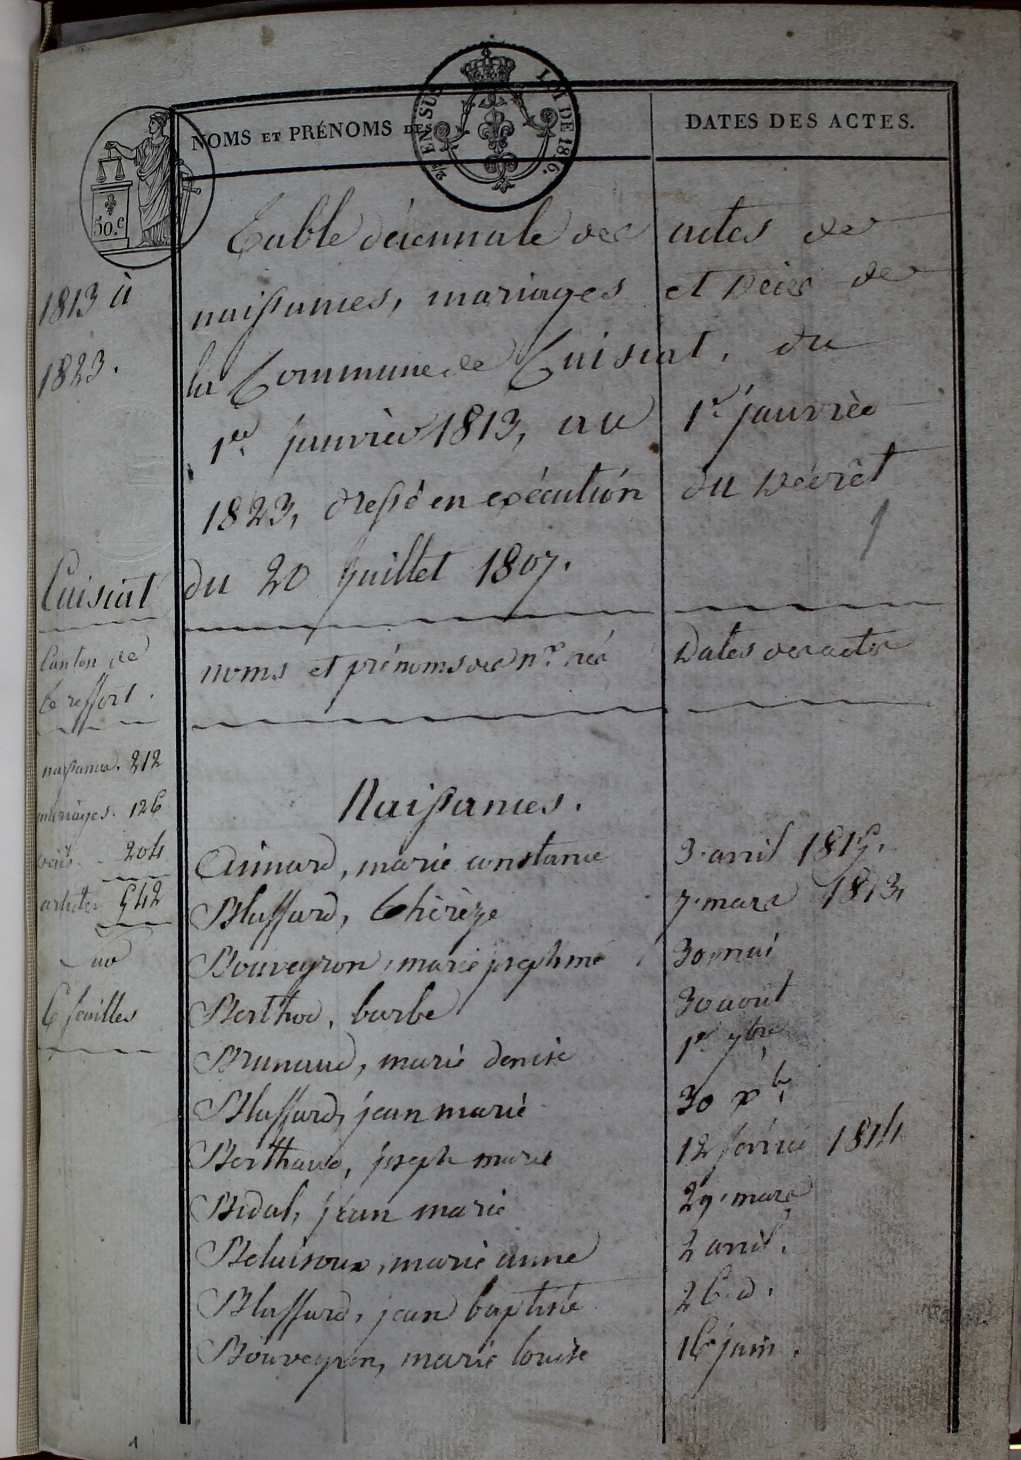 NOMS ET PRÉNOMS DES
DATES DES ACTES.
EN SUS
LOI DE 1816.
50.c
1813 à
1823.
Table décennale des actes de
naissances, mariages et décès de
la Commune de Cuisiat, du
1er janvier 1813, au 1er janvier
1823, dressé en exécution du Décrêt
du 20 Juillet 1807.
Cuisiat
Canton de
Ceffort.
noms et prénoms des nés
Dates des actes
naissances. 212
mariages. 126
décès. 204
articles 542
6 feuilles
Naissances.
Aimard, marie constance 3 avril 1815.
Blassard, Thérèze 7 mars 1813,
Bouveyron, marie josephine 30 mai
Berthod, barbe 30 août
Brunaud, marie denise 1er 7bre
Blassard, jean marie 30 Xbre
Berthaud, joseph marie 12 février 1814
Bidal, jean marie 29 mars
Beluisoux, marie anne 2 avril.
Blassard, jean baptiste 26 d.
Bouveyron, marie louise 16 juin.
1